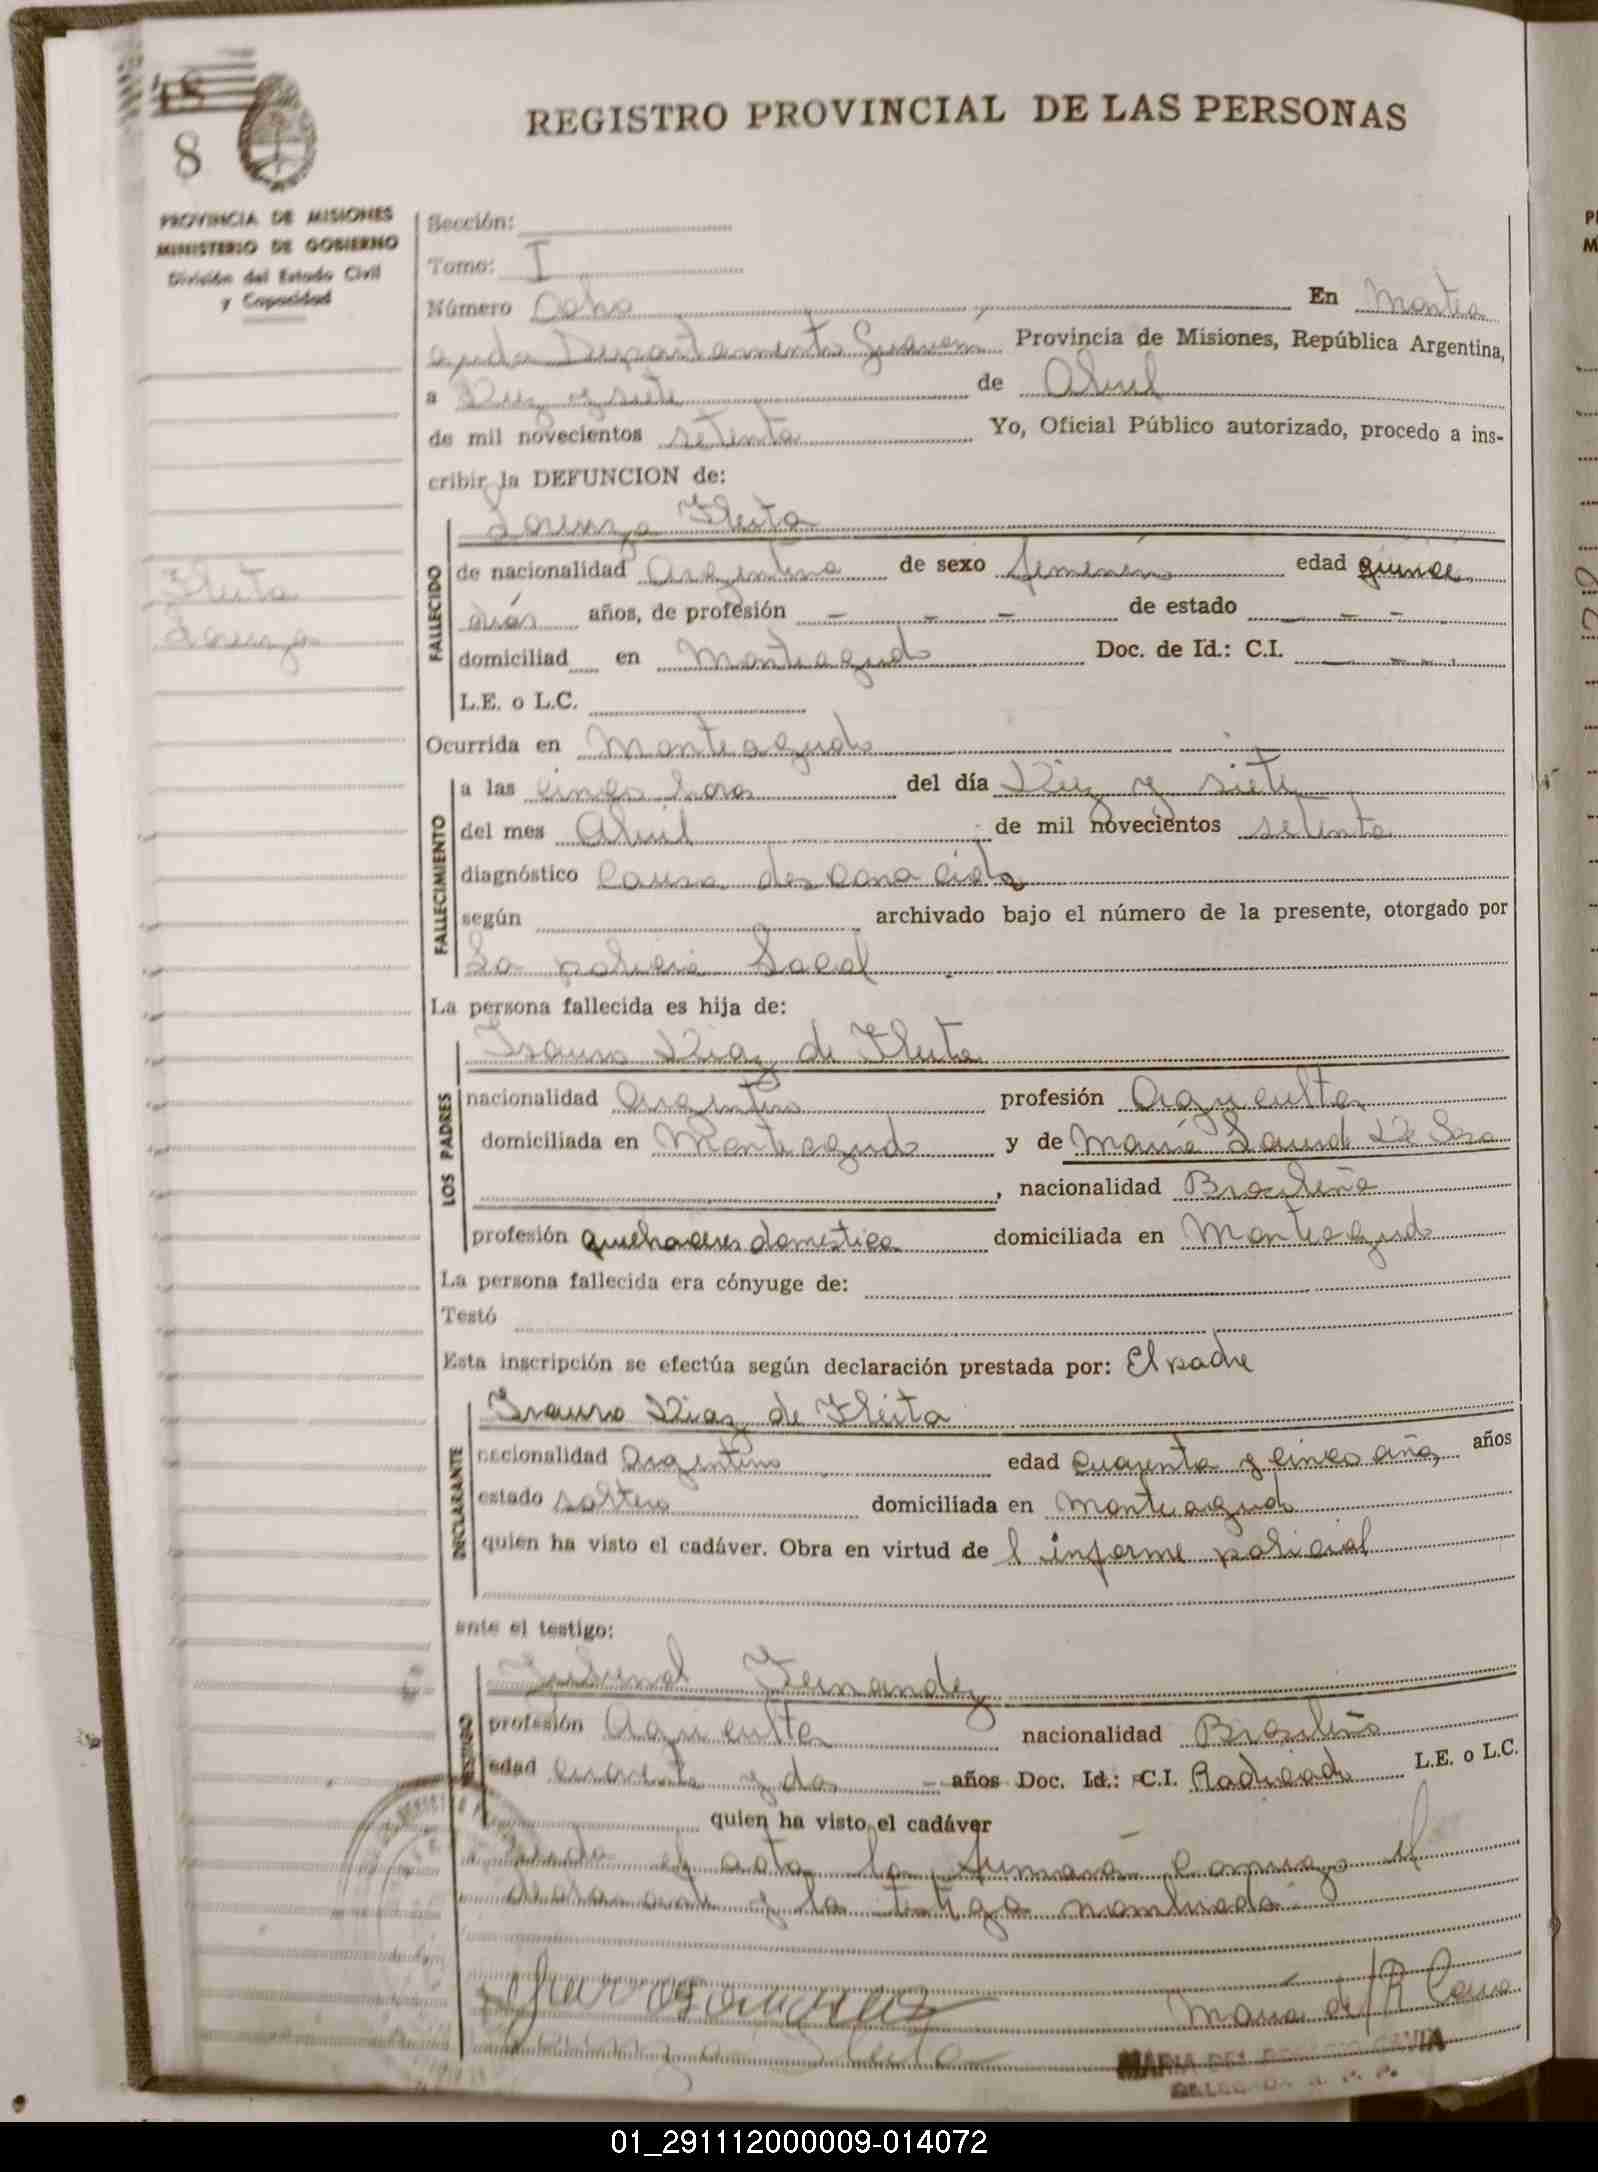 8
REGISTRO PROVINCIAL DE LAS PERSONAS
PROVINCIA DE MISIONES
MINISTERIO DE GOBIERNO
División del Estado Civil
y Capacidad
Sección:
Tomo: I
Número Ocho En Montea
gudo Departamento Guaraní Provincia de Misiones, República Argentina,
a Diez y siete de Abril
de mil novecientos setenta Yo, Oficial Público autorizado, procedo a ins-
cribir la DEFUNCION de:
Lorenza Fleita
Fleita
Lorenza
FALLECIDO
de nacionalidad Argentina de sexo femenino edad quince
días años, de profesión — — — de estado — — —
domiciliad en Monteagudo Doc. de Id.: C.I. — — —
L.E. o L.C.
Ocurrida en Monteagudo
FALLECIMIENTO
a las cinco hora del día Diez y siete
del mes Abril de mil novecientos setenta
diagnóstico Causa desconocida
según archivado bajo el número de la presente, otorgado por
La policia Local
La persona fallecida es hija de:
LOS PADRES
Isauro Diaz de Fleita
nacionalidad Argentino profesión Agricultor
domiciliada en Monteagudo y de María
, nacionalidad Brasileña
profesión quehaceres domestica domiciliada en Monteagudo
La persona fallecida era cónyuge de:
Testó
Esta inscripción se efectúa según declaración prestada por: El padre
DECLARANTE
Isauro Diaz de Fleita
nacionalidad Argentino edad cuarenta y cinco año, años
estado soltero domiciliada en Monteagudo
quien ha visto el cadáver. Obra en virtud de l informe policial
ante el testigo:
TESTIGO
Fernandez
profesión Agricultor nacionalidad Brasileño
edad y dos — años Doc. Id.: C.I. Radicado L.E. o L.C.
quien ha visto el cadáver
el acta la firmará conmigo el
y la testigo nombrada
María del R
MARIA DEL
01_291112000009-014072